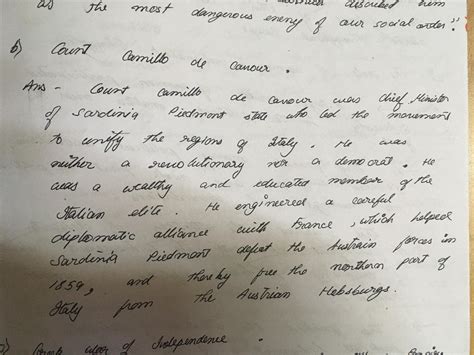 as the most dangerous enemy of our social order."
b) Count Camillo de Cavour.
Ans - Count Camillo de Cavour was chief Minister
of Sardinia Piedmont state who led the movement
to unify the regions of Italy. He was
neither a revolutionary nor a democrat. He
was a wealthy and educated member of the
Italian elite. He engineered a careful
diplomatic alliance with France, which helped
Sardinia Piedmont defeat the Austrain forces in
1859, and thereby free the northern part of
Italy from the Austrian Hebsburgs.
War of Independence.